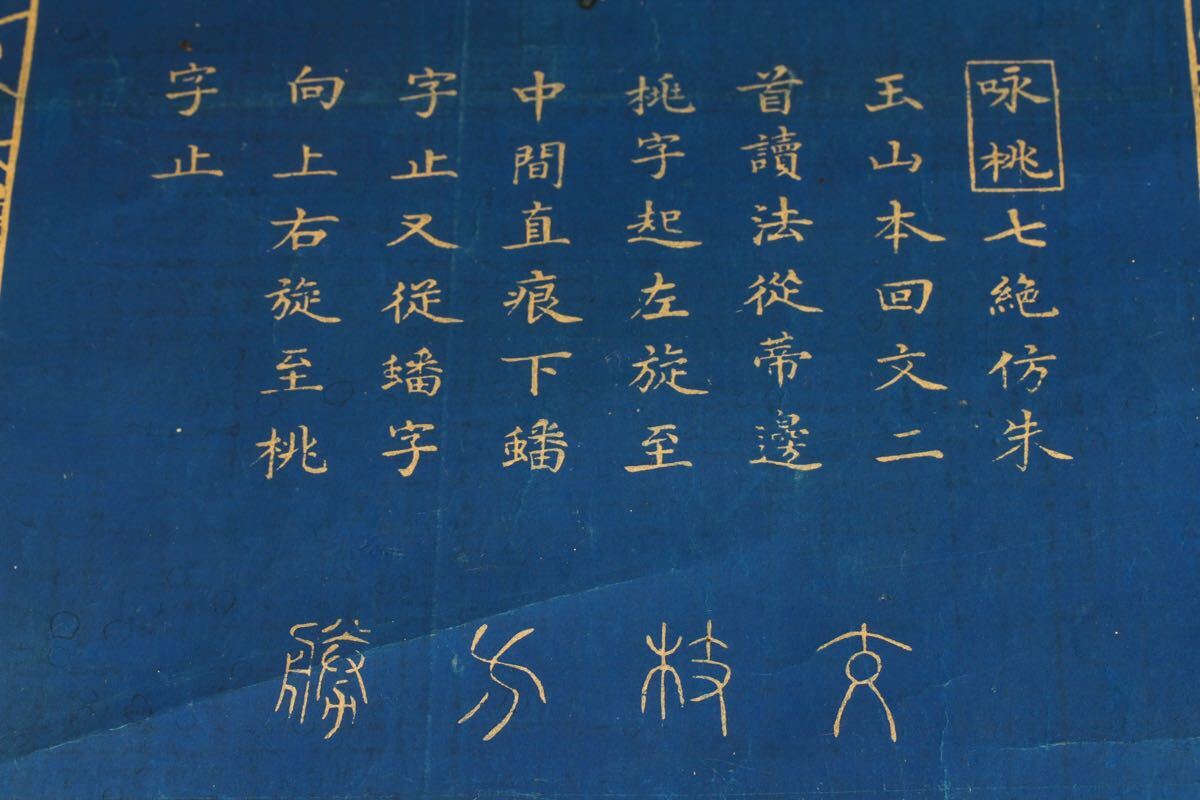 咏桃七絶仿朱
玉山本回文二
首讀法從蒂邊
桃字起左旋至
中間直痕下蟠
字止又從蟠字
向上右旋至桃
字止
文枝分勝